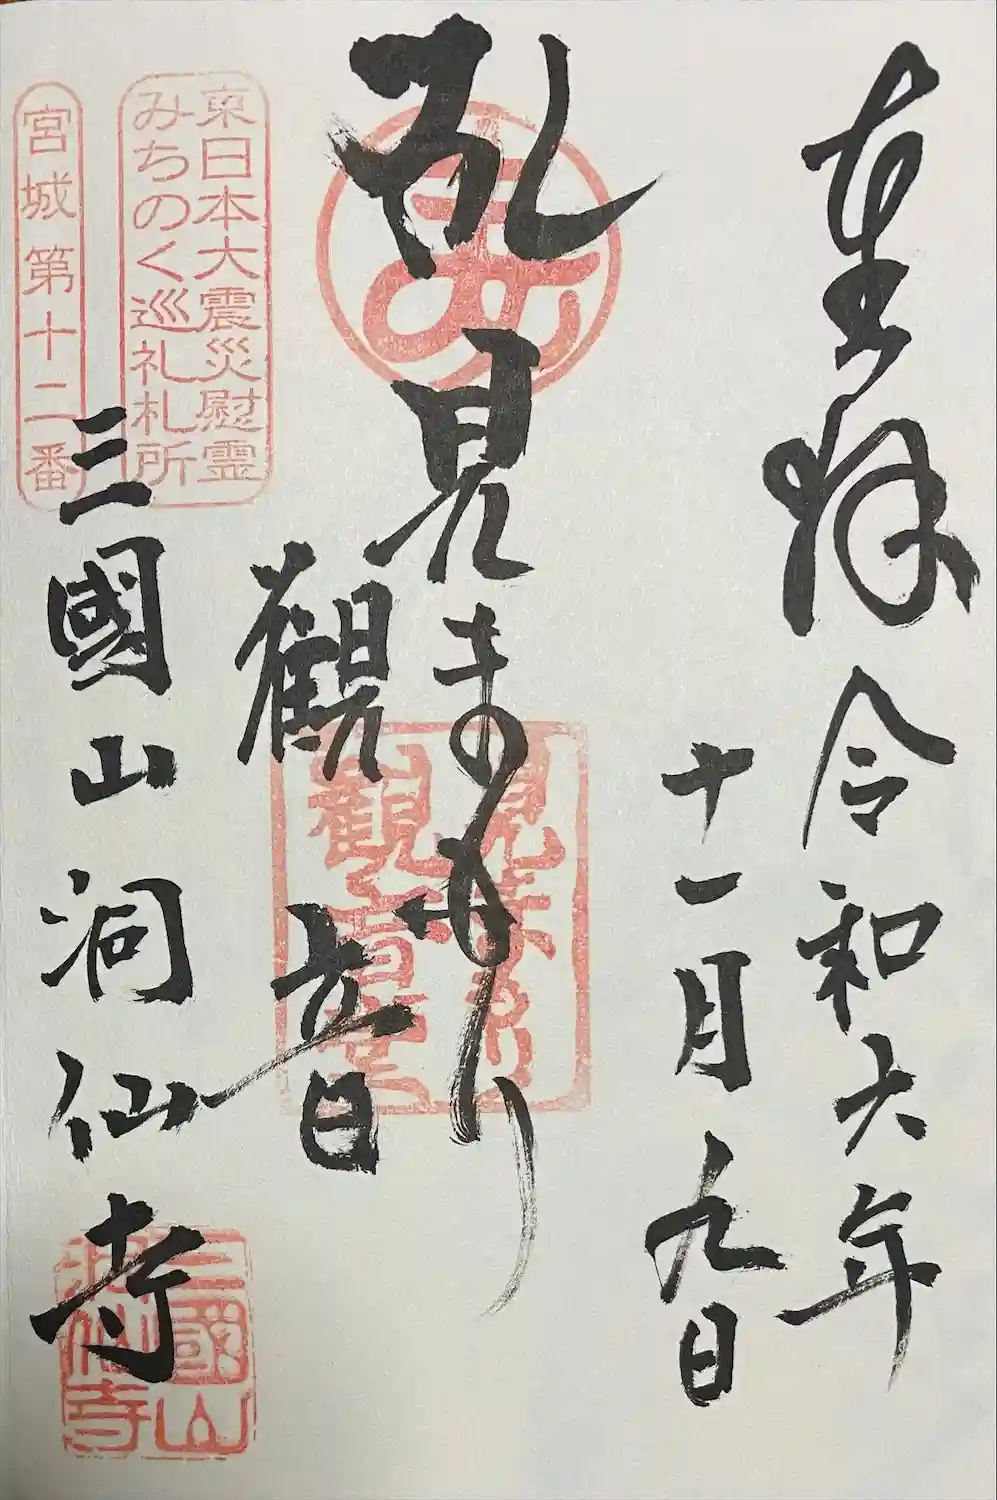 奉拝
令和六年
十一月九日
見まもり
觀音
三國山洞仙寺
東日本大震災慰霊
みちのく巡礼札所
宮城第十二番
三國山
洞仙寺